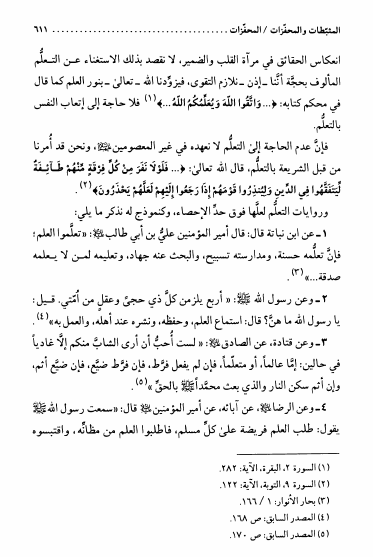 المثبّطات والمحفّزات / المحفّزات ........................ ٦١١
انعكاس الحقائق في مرآة القلب والضمير، لا نقصد بذلك الاستغناء عن التعلُّم
المألوف بحجّة أنَّنا ـ إذن ـ نلازم التقوى، فيزوِّدنا الله ـ تعالىٰ ـ بنور العلم كما قال
في محكم كتابه: ﴿... وَاتَّقُوا اللَّهَ وَيُعَلِّمُكُمُ اللَّهُ ...﴾(١) فلا حاجة إلى إتعاب النفس
بالتعلّم.
فإنَّ عدم الحاجة إلى التعلُّم لا نعهده في غير المعصومين، ونحن قد أُمرنا
من قبل الشريعة بالتعلّم، قال الله تعالىٰ: ﴿... فَلَوْلَا نَفَرَ مِن كُلِّ فِرْقَةٍ مِّنْهُمْ طَائِفَةٌ
لِّيَتَفَقَّهُوا فِي الدِّينِ وَلِيُنذِرُوا قَوْمَهُمْ إِذَا رَجَعُوا إِلَيْهِمْ لَعَلَّهُمْ يَحْذَرُونَ﴾(٢).
وروايات التعلُّم لعلَّها فوق حدّ الإحصاء، وكنموذج له نذكر ما يلي:
١ ـ عن ابن نباتة قال: قال أمير المؤمنين عليُّ بن أبي طالب: «تعلَّموا العلم؛
فإنَّ تعلُّمه حسنة، ومدارسته تسبيح، والبحث عنه جهاد، وتعليمه لمـن لا يـعلمه
صدقة...»(٣).
٢ ـ وعن رسول الله ﷺ: «أربع يلزمن كلّ ذي حجىً وعقلٍ من أُمّتي. قـيل:
يا رسول الله ما هنَّ؟ قال: استماع العلم، وحفظه، ونشره عند أهله، والعمل به»(٤).
٣ ـ وعن قتادة، عن الصادق: «لست أُحبُّ أن أرى الشابَّ منكم إلَّا غادياً
في حالين: إمَّا عالماً، أو متعلّماً، فإن لم يفعل فرَّط، فإن فرَّط ضيَّع، فإن ضيَّع أثم،
وإن أثم سكن النار والذي بعث محمّداً ﷺ بالحقّ»(٥).
٤ ـ وعن الرضا، عن آبائه، عن أمير المؤمنين قال: «سمعت رسول الله ﷺ
يقول: طلب العلم فريضة على كلّ مسلم، فاطلبوا العلم من مظانّه، واقتبسوه
(١) السورة ٢، البقرة، الآية: ٢٨٢.
(٢) السورة ٩، التوبة، الآية: ١٢٢.
(٣) بحار الأنوار: ١ / ١٦٦.
(٤) المصدر السابق: ص ١٦٨.
(٥) المصدر السابق: ص ١٧٠.